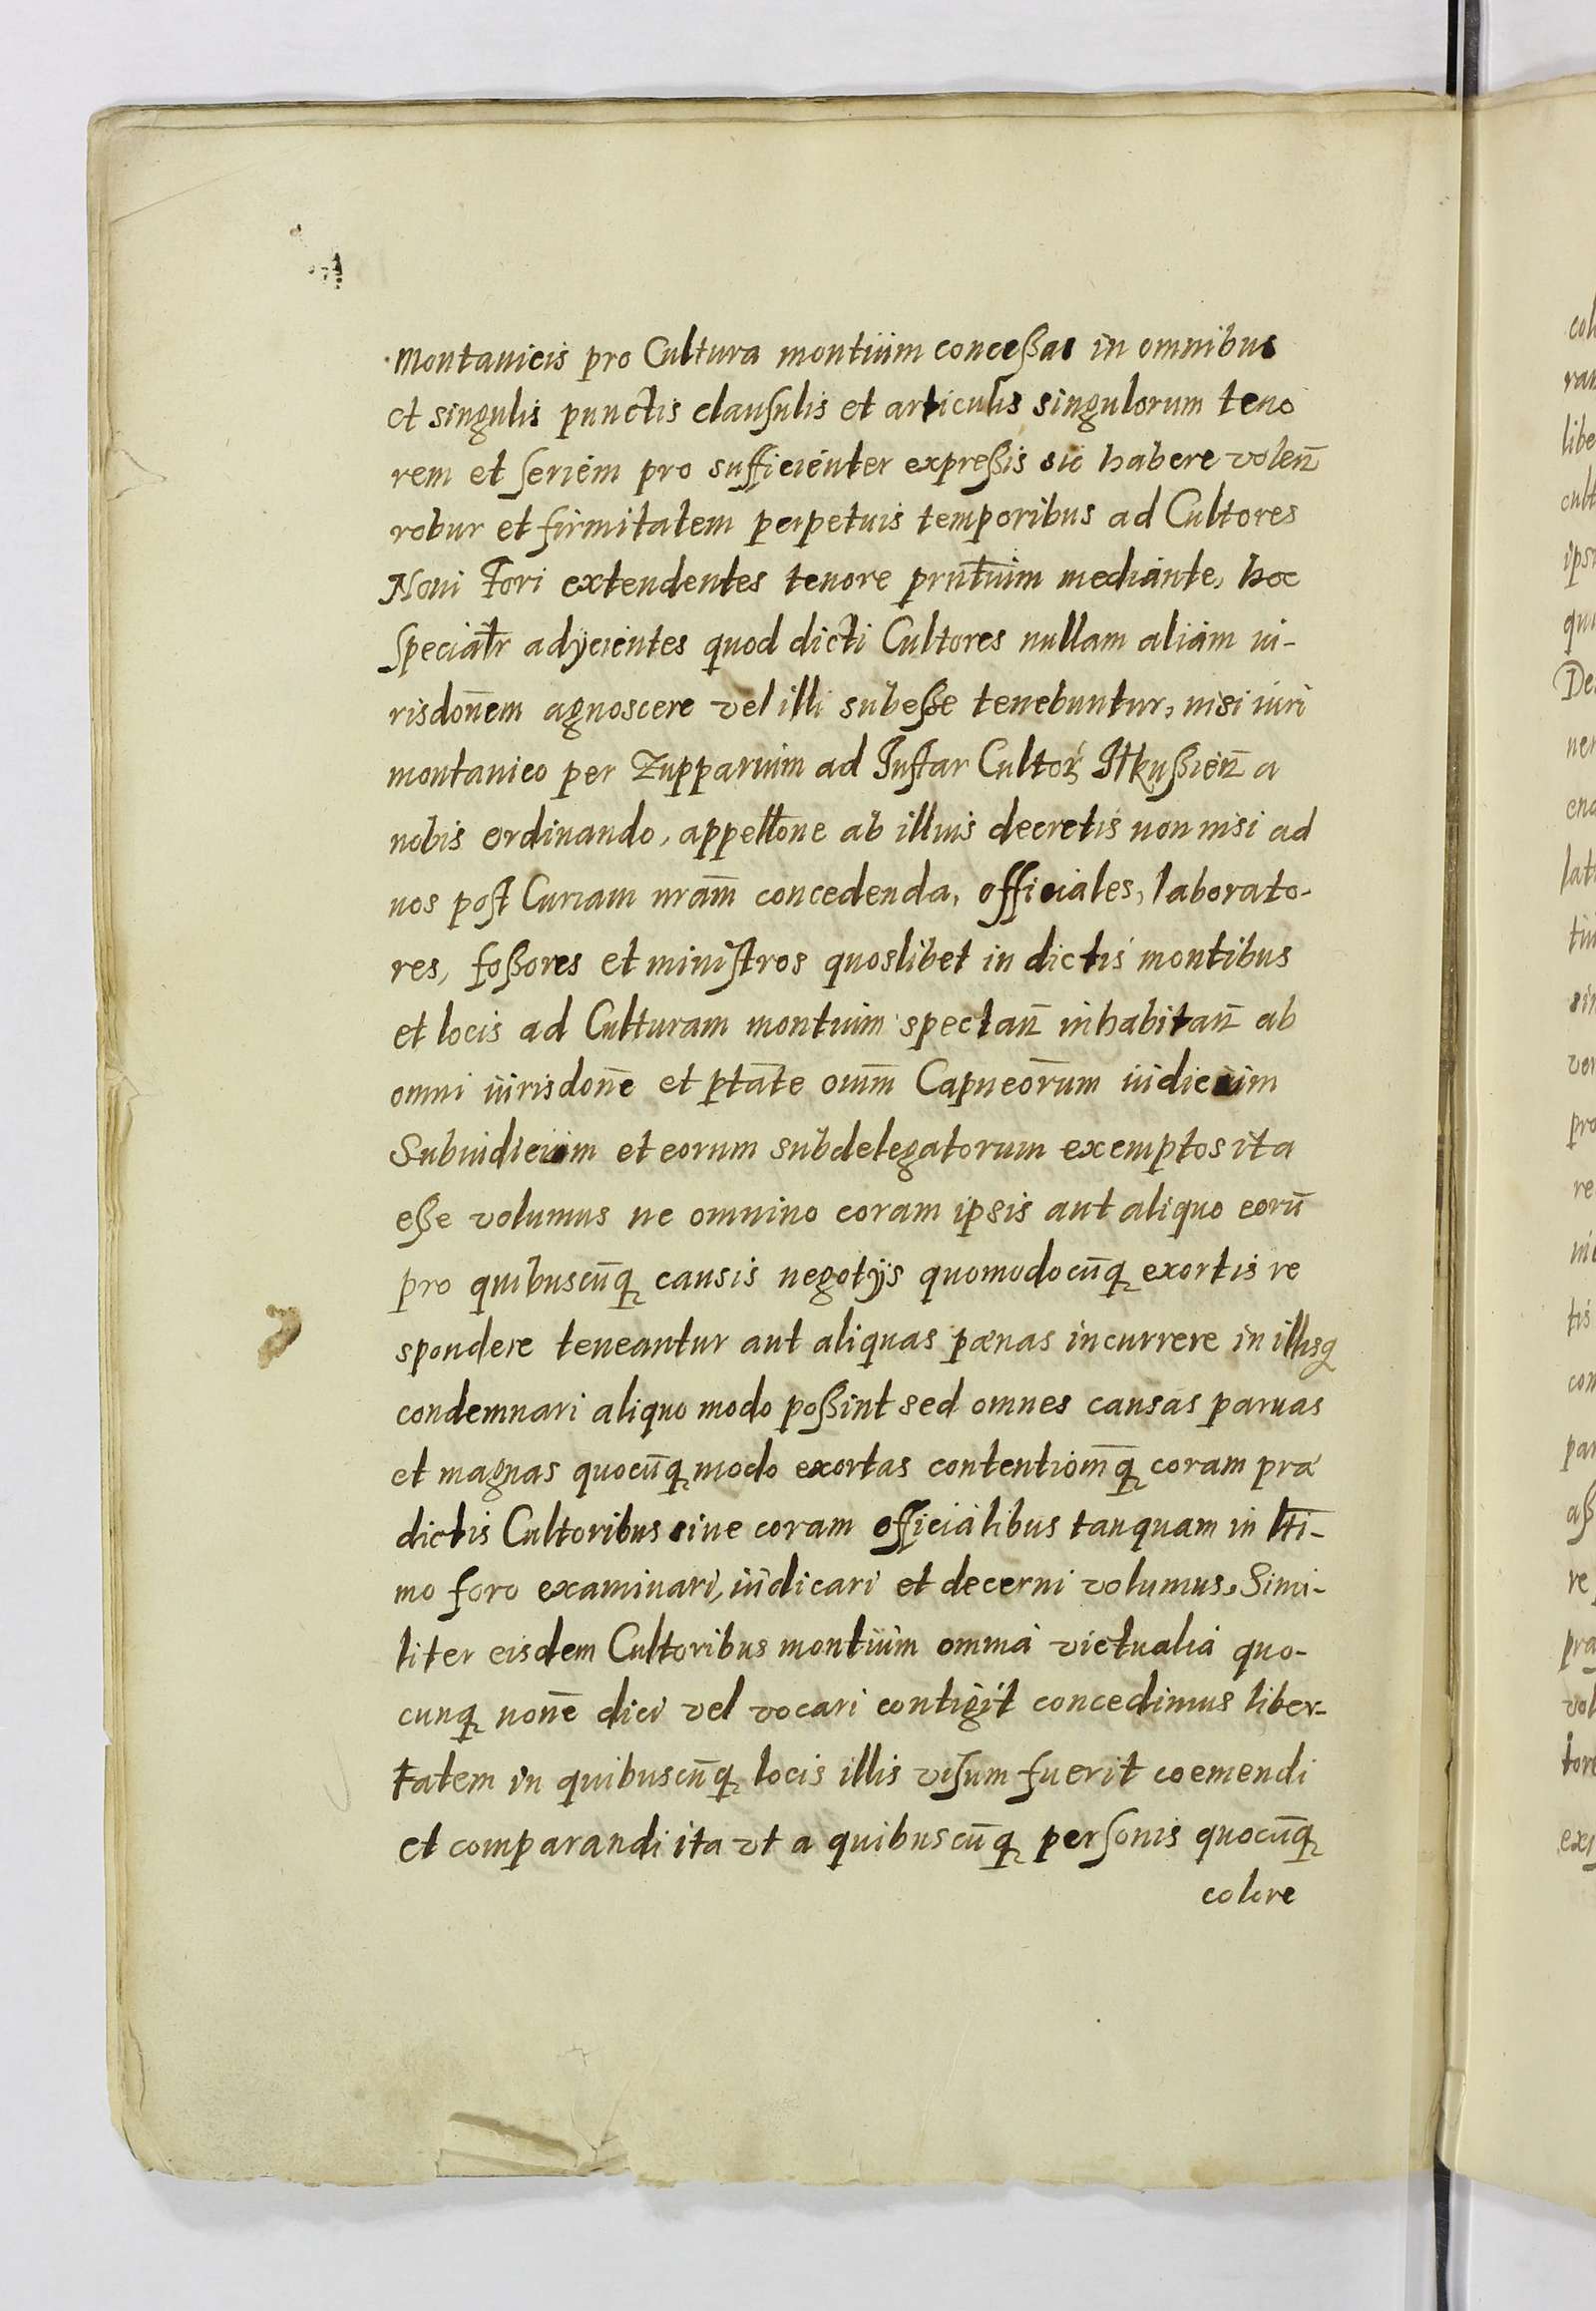 Montanicis pro Cultura montiũm conceßas in omnibus
et singulis punctis clauſulis et articulis singulorum teno
rem et ſeriem pro sufficienter expreßis sic habere volen̄
robur et firmitatem perpetuis temporibus ad Cultores
Noui Fori extendentes tenore pr̄ntium mediante, hoc
ſpecialr̄ adÿcientes quod dicti Cultores nullam aliam iu-
risdon̄em agnoscere vel illi subeße tenebuntur, nisi iuri
montanico per Zupparium ad Inſtar Cultorꝝ Ilkußien̄ a
nobis ordinando, appellōne ab illius decretis non nisi ad
nos poſt Curiam nram̄ concedenda, officiales, laborato-
res, foßores et miniſtros quoslibet in dictis montibus
et locis ad Culturam montium spectan̄ inhabitan̄ ab
omni iurisdon̄e et ptāte om̄m Capneorum iudicium
Subiudicium et eorum subdelegatorum exemptos ita
eße volumus ne omnino coram ipsis aut aliquo eorū
pro quibuscūq causis negotÿs quomodocūq exortis re
spondere teneantur aut aliquas pænas incurrere in illisq
condemnari aliquo modo poßint sed omnes causas paruas
et magnas quocūq modo exortas contentiom̄q coram præ
dictis Cultoribus siue coram officialibus tanquam in ltī-
mo foro examinari, iudicari et decerni volumus. Simi-
liter eisdem Cultoribus montium omnia victualia quo-
cunq non̄e dici vel vocari contigit concedimus liber-
tatem in quibuscūq locis illis viſum fuerit coemendi
et comparandi ita vt a quibuscūq perſonis quocūq
colore